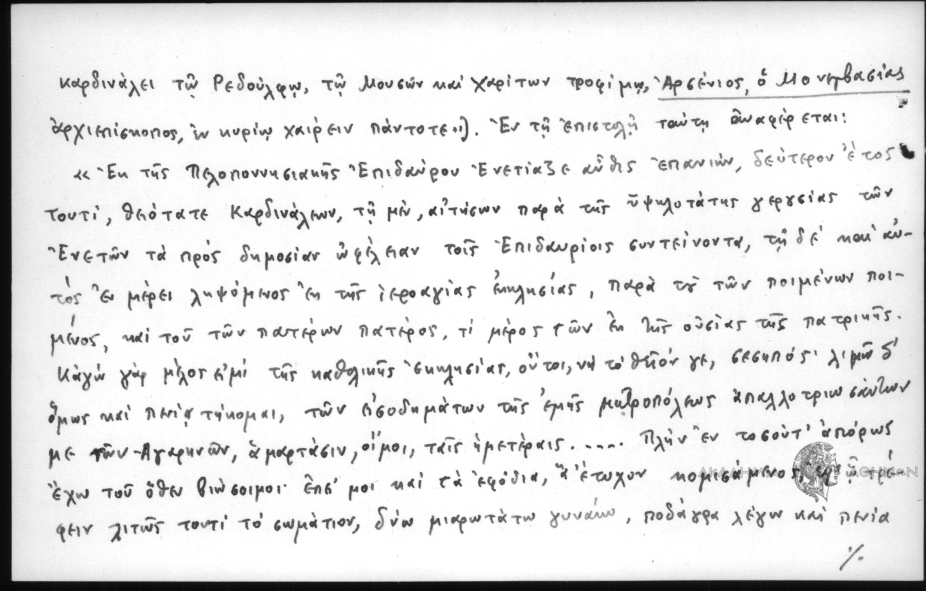 καρδινάλει τῷ Ρεδούλφῳ, τῷ Μουσῶν καὶ Χαρίτων τροφίμῳ, Ἀρσένιος, ὁ Μονεμβασίας
ἀρχιεπίσκοπος, ἐν κυρίῳ χαίρειν πάντοτε»). Ἐν τῇ ἐπιστολῇ ταύτῃ ἀναφέρεται:
« Ἐκ τῆς Πελοποννησιακῆς Ἐπιδαύρου Ἐνετίαζε αὖθις ἐπανιὼν, δεύτερον ἔτος
τουτί, θειότατε Καρδινάλεων, τῇ μὲν, αἰτήσων παρὰ τῆς ὑψηλοτάτης γερυσίας τῶν
Ἐνετῶν τὰ πρὸς δημοσίαν ὠφέλειαν τοῖς Ἐπιδαυρίοις συντείνοντα, τῇ δὲ καὶ αὐ-
τός ἐν μέρει ληψόμενος ἐκ τῆς ἱεροαγίας ἐκκλησίας, παρὰ τῦ τῶν ποιμένων ποι-
μένος, καὶ τοῦ τῶν πατέρων πατέρος, τὶ μέρος τῶν ἐκ τῆς οὐσίας τῆς πατρικῆς.
Κἀγὼ γὰρ μέλος εἰμί τῆς καθολικῆς ἐκκλησίας, οὔτοι, νὴ τὸ θεῖόν γε, σεσηπός· λιμῷ δ'
ὅμως καὶ πενίᾳ τήκομαι, τῶν εἰσοδημάτων τῆς ἐμῆς μητροπόλεως ἀπαλλοτριωσάντων
με τῶν Ἀγαρηνῶν, ἁμαρτάσιν, οἴμοι, ταῖς ἡμετέραις..... Πλὴν ἐν τοσούτ' ἀπόρως
ἔχω τοῦ ὅθεν βιώσοιμι· ἐπεί μοι καὶ τὰ ἐφόδια, ἃ ἔτυχον κομισάμενος, ἐφ' ᾧ τρέ-
φειν λιτῶς τουτὶ τὸ σωμάτιον, δύω μιαρωτάτω γυναίω, ποδάγρα λέγω καὶ πενία
·/.